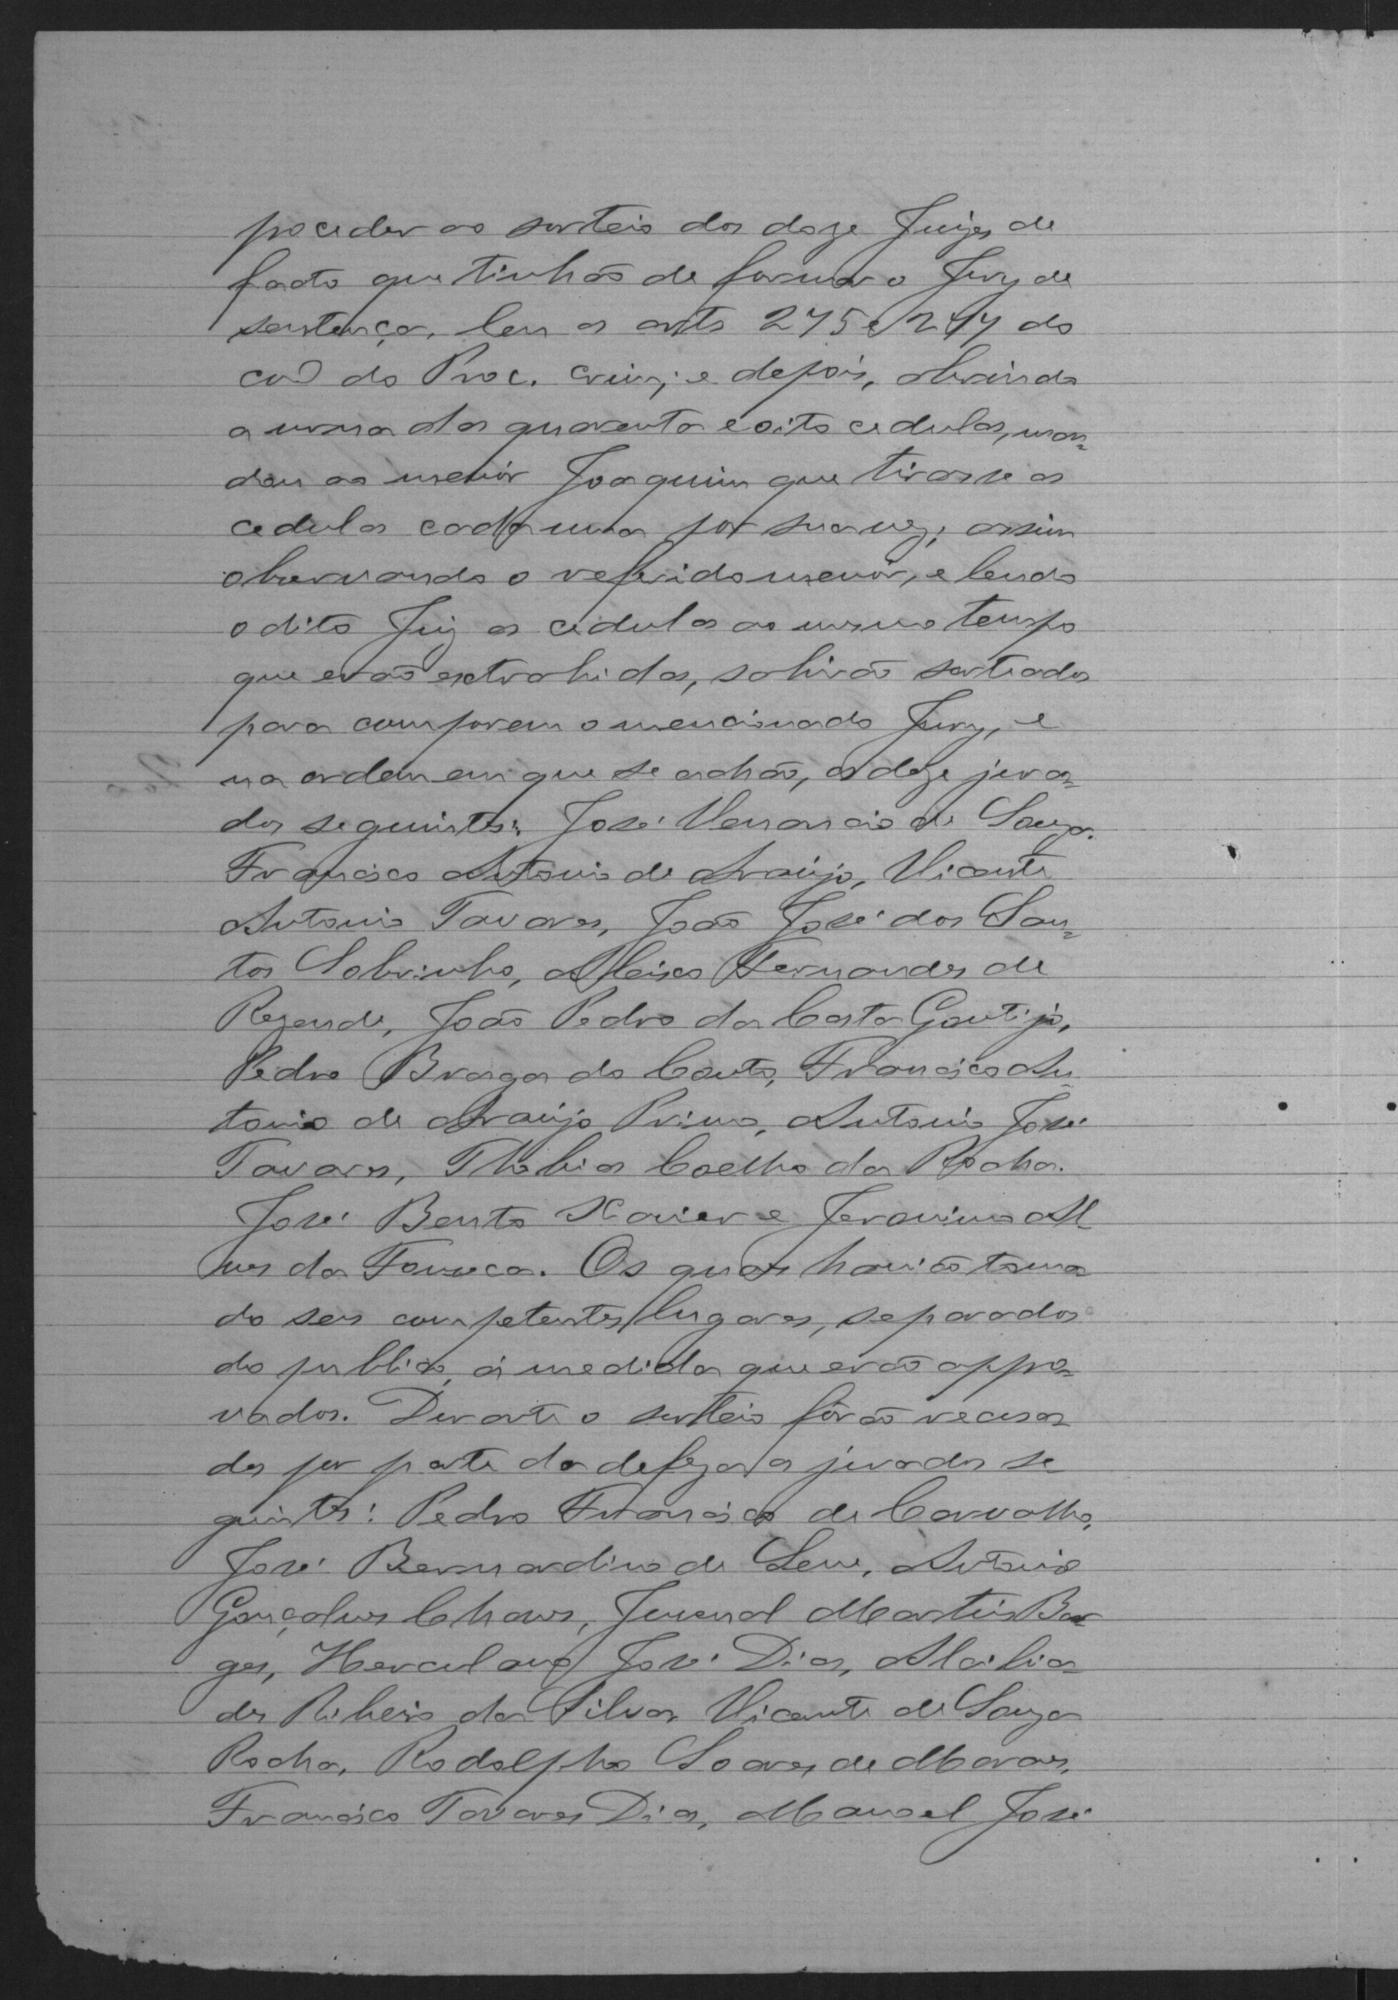 proceder ao sorteio dos doze Juizes de
facto que tinhão de formar o Jury de
sentença, leu os arts 275 e 277 do
cod do Proc. crim; e depois, abrindo
a urna das quarenta e oito cedulas, man=
dou ao menór Joaquim que tirasse as
cedulas cada uma por sua vez; assim
observando o referido menór, e lendo
o dito Juiz as cedulas ao mesmo tempo
que erão extrahidas, sahirão sorteados
para comporem o mencionado Jury, e
na ordem em que se achão, os doze jura=
dos seguintes: José Venancio de Souza.
Francisco Antonio de Araujo, Vicente
Antonio Tavares, João José dos San=
tos Sobrinho, Aleixo Fernandes de
Rezende, João Pedro da Costa Gontijo,
Pedro Braga do Couto, Francisco An
tonio de Araujo Primo, Antonio José
Tavares, Thobias Coelho da Rocha.
José Bento Xavier e Jeronimo Al
ves da Fonseca. Os quaes havião toma
do seus competentes lugares, separados
do publico, á medida que erão appro=
vados. Durante o sorteio fôrão recusa=
dos por parte da defeza os jurados se
guintes: Pedro Francisco de Carvalho,
José Bernardino de Sene, Antonio
Gonçalves Chaves, Juvenal Martins Bor
ges, Herculano José Dias, Alcibia=
des Ribeiro da Silva, Vicente de Souza
Rocha, Rodolpho Soares de Moraes,
Francisco Tavares Dias, Manoel José